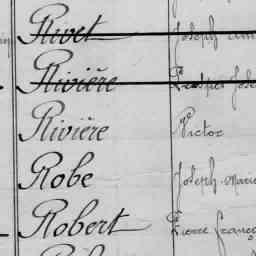 Rivet Joseph
Rivière Prosper José
Rivière Victor
Robe Joseph-Marie
Robert Pierre franç